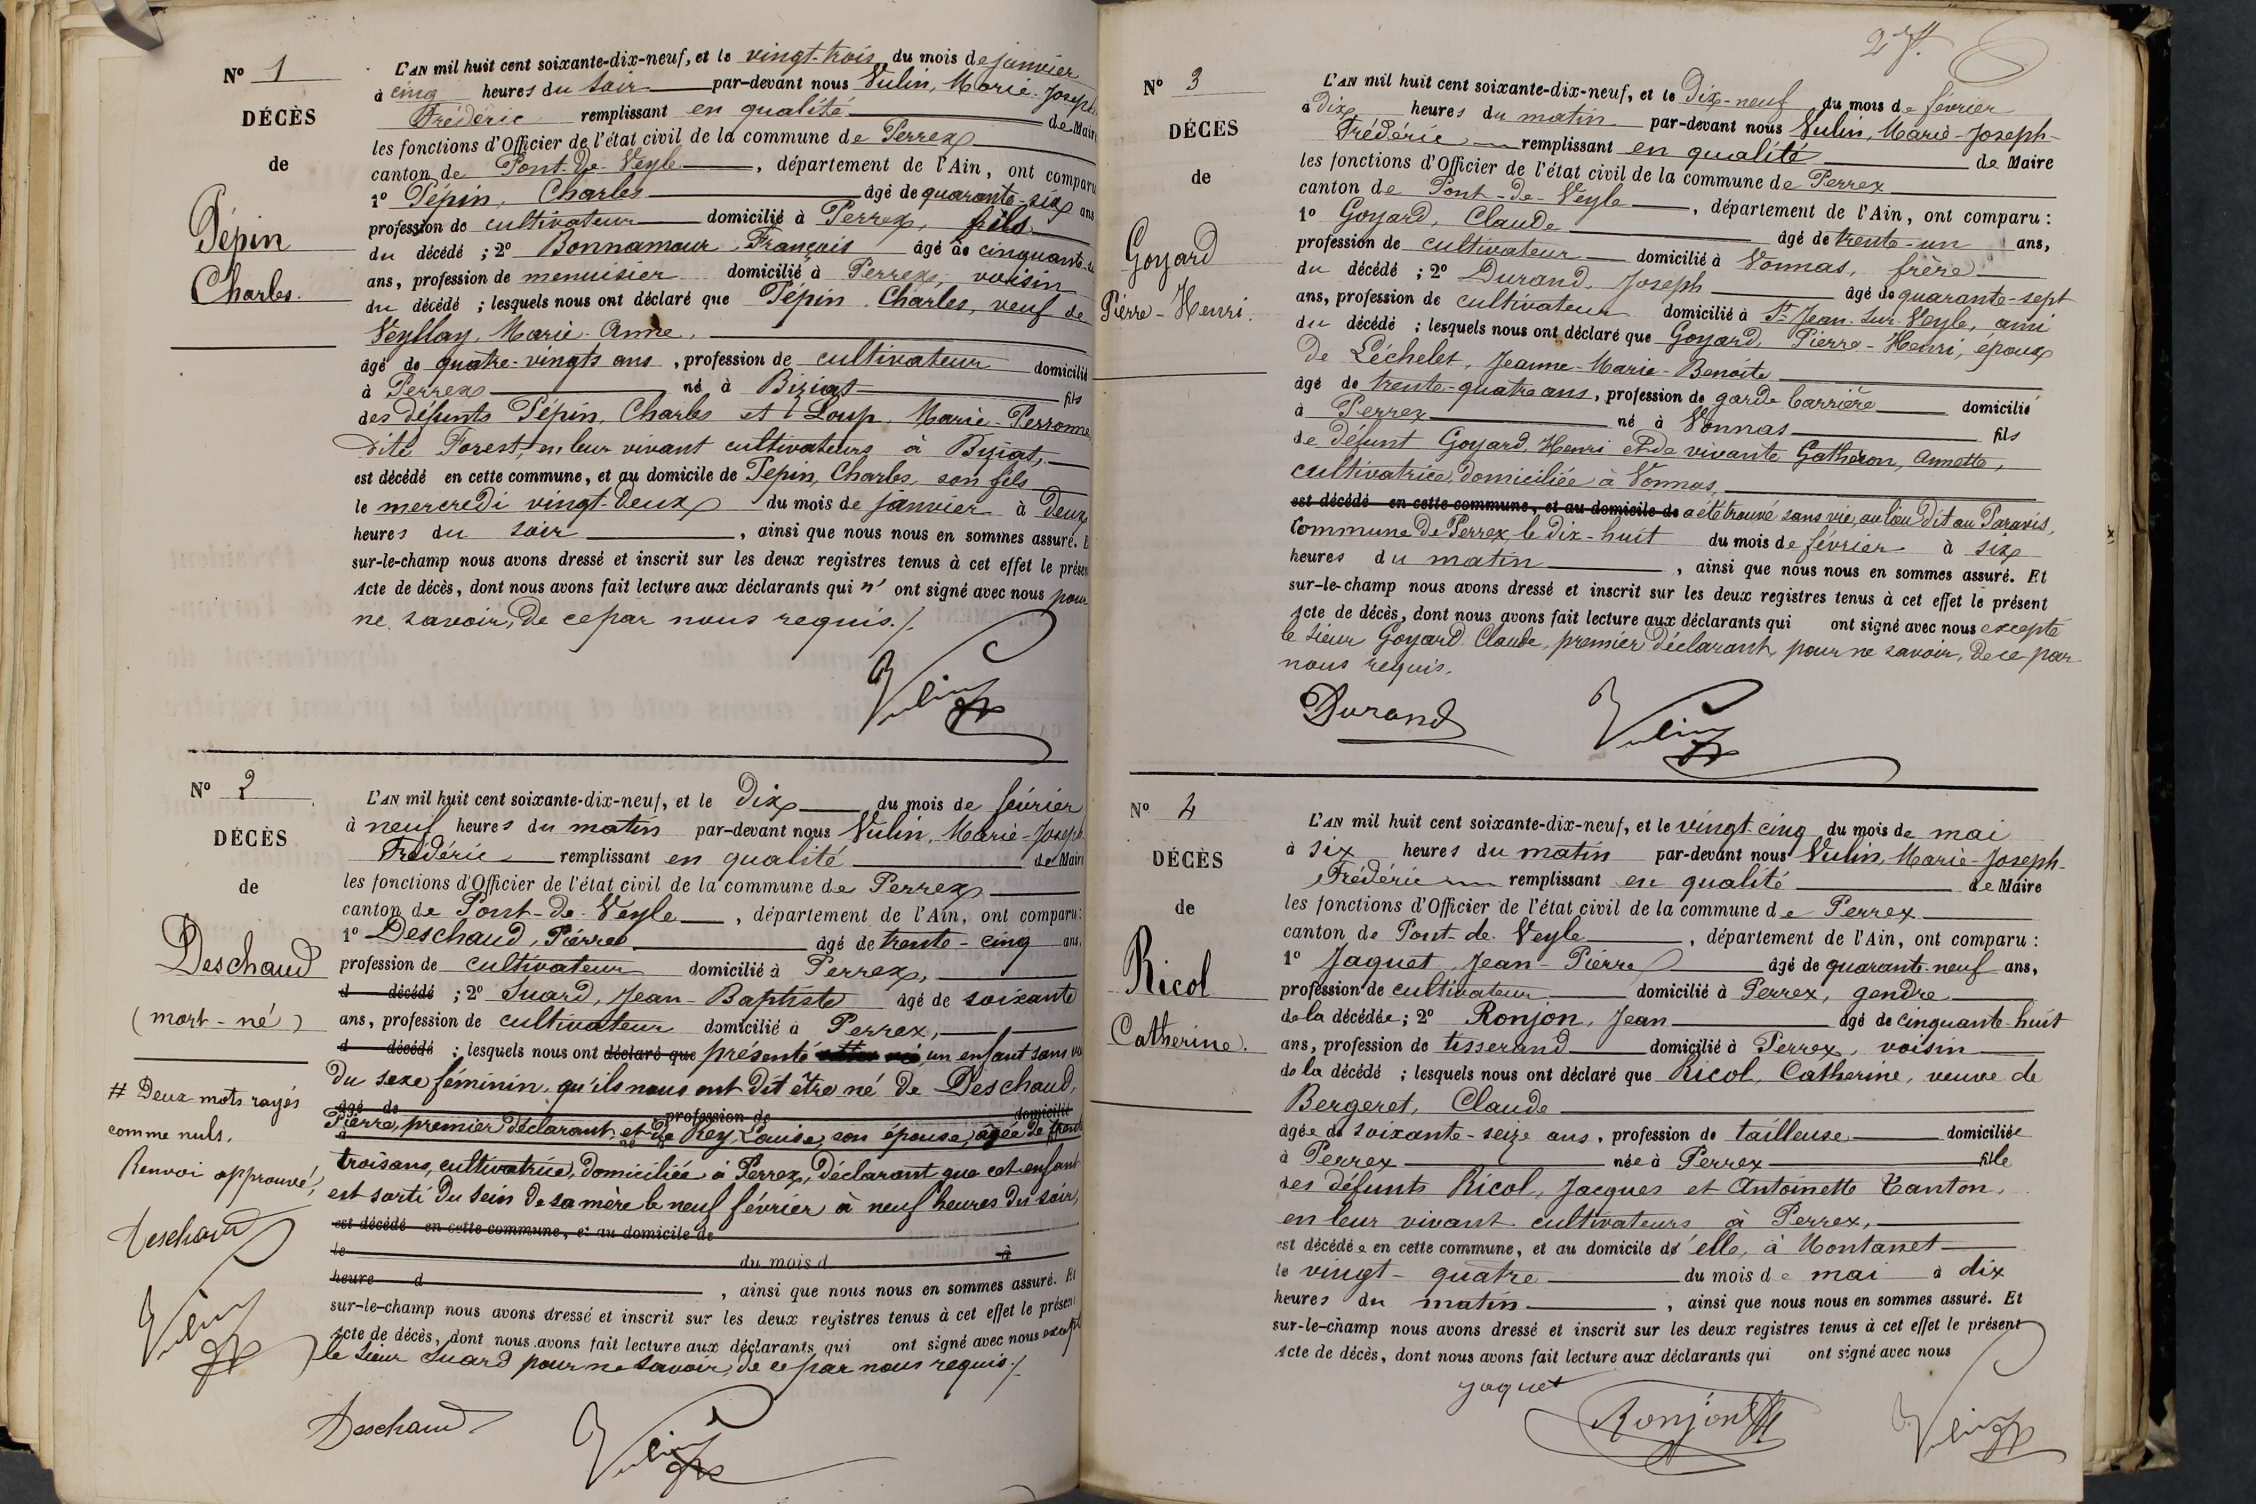 N° 1
DÉCÈS
de
Pépin
Charles.
L'AN mil huit cent soixante-dix-neuf, et le vingt-trois du mois de janvier
à cinq heures du soir par-devant nous Vulin, Marie-Joseph
Frédéric remplissant en qualité de Maire
les fonctions d'Officier de l'état civil de la commune de Perrex
canton de Pont-de-Veyle, département de l'Ain, ont comparu
1° Pépin, Charles âgé de quarante-six ans
profession de cultivateur domicilié à Perrex, fils
du décédé ; 2° Bonnamour, François âgé de cinquante
ans, profession de menuisier domicilié à Perrex, voisin
du décédé ; lesquels nous ont déclaré que Pépin Charles, veuf de
Veyllay, Marie-Anne,
âgé de quatre-vingts ans, profession de cultivateur domicilié
à Perrex né à Biziat fils
des défunts Pépin, Charles et Loup, Marie-Perronne
dite Forest, en leur vivant cultivateurs à Biziat,
est décédé en cette commune, et au domicile de Pepin, Charles, son fils
le mercredi vingt-deux du mois de janvier à deux
heures du soir, ainsi que nous nous en sommes assuré. E
sur-le-champ nous avons dressé et inscrit sur les deux registres tenus à cet effet le présen
Acte de décès, dont nous avons fait lecture aux déclarants qui n' ont signé avec nous pour
ne savoir, de ce par nous requis./.
Vulin
N° 2
DÉCÈS
de
Deschaud
(mort-né)
# Deux mots rayés
comme nuls.
Renvoi approuvé,
Deschaud
Vulin
L'AN mil huit cent soixante-dix-neuf, et le dix du mois de février
à neuf heures du matin par-devant nous Vulin, Marie-Joseph
Frédéric remplissant en qualité de Maire
les fonctions d'Officier de l'état civil de la commune de Perrex
canton de Pont-de-Veyle, département de l'Ain, ont comparu :
1° Deschaud, Pierre âgé de trente-cinq ans,
profession de cultivateur domicilié à Perrex,
d décédé ; 2° Suard, Jean-Baptiste âgé de soixante
ans, profession de cultivateur domicilié à Perrex,
d décédé ; lesquels nous ont déclaré que présenté un enfant sans vie
du sexe féminin, qu'ils nous ont dit être né de Deschaud,
âgé de profession de domicilié
Pierre, premier déclarant, et de Rey, Louise, son épouse, âgée de trente
trois ans, cultivatrice, domiciliée à Perrex, déclarant que cet enfant
est sorti du sein de sa mère le neuf février à neuf heures du soir,
est décédé en cette commune, et au domicile de
le du mois d à
heure d, ainsi que nous nous en sommes assuré. Et
sur-le-champ nous avons dressé et inscrit sur les deux registres tenus à cet effet le présent
Acte de décès, dont nous avons fait lecture aux déclarants qui ont signé avec nous excepté
le sieur Suard pour ne savoir, de ce par nous requis./.
Deschaud
Vulin
27.
N° 3
DÉCÈS
de
Goyard
Pierre-Henri.
L'AN mil huit cent soixante-dix-neuf, et le dix-neuf du mois de février
à dix heures du matin par-devant nous Vulin, Marie-Joseph-
Frédéric remplissant en qualité de Maire
les fonctions d'Officier de l'état civil de la commune de Perrex
canton de Pont-de-Veyle, département de l'Ain, ont comparu :
1° Goyard, Claude âgé de trente-un ans,
profession de cultivateur domicilié à Vonnas, frère
du décédé ; 2° Durand, Joseph âgé de quarante-sept
ans, profession de cultivateur domicilié à St-Jean-sur-Veyle, ami
du décédé ; lesquels nous ont déclaré que Goyard, Pierre-Henri, époux
de Léchelet, Jeanne-Marie-Benoîte
âgé de trente-quatre ans, profession de garde barrière domicilié
à Perrex né à Vonnas fils
de défunt Goyard, Henri et de vivante Gatheron, Annette,
cultivatrice, domiciliée à Vonnas,
est décédé en cette commune, et au domicile de a été trouvé sans vie, au lieu dit au Paravis,
commune de Perrex, le dix-huit du mois de février à six
heures du matin, ainsi que nous nous en sommes assuré. Et
sur-le-champ nous avons dressé et inscrit sur les deux registres tenus à cet effet le présent
Acte de décès, dont nous avons fait lecture aux déclarants qui ont signé avec nous excepté
le sieur Goyard Claude, premier déclarant, pour ne savoir, de ce par
nous requis.
Durand
Vulin
N° 4
DÉCÈS
de
Ricol
Catherine.
L'AN mil huit cent soixante-dix-neuf, et le vingt-cinq du mois de mai
à six heures du matin par-devant nous Vulin, Marie-Joseph-
Frédéric remplissant en qualité de Maire
les fonctions d'Officier de l'état civil de la commune de Perrex
canton de Pont-de-Veyle, département de l'Ain, ont comparu :
1° Jaquet, Jean-Pierre âgé de quarante-neuf ans,
profession de cultivateur domicilié à Perrex, gendre
de la décédée ; 2° Ronjon, Jean âgé de cinquante-huit
ans, profession de tisserand domicilié à Perrex, voisin
de la décédé ; lesquels nous ont déclaré que Ricol, Catherine, veuve de
Bergeret, Claude
âgée de soixante-seize ans, profession de tailleuse domiciliée
à Perrex née à Perrex fille
des défunts Ricol, Jacques et Antoinette Tanton,
en leur vivant cultivateurs à Perrex,
est décédée en cette commune, et au domicile d'elle, à Montanet
le vingt-quatre du mois de mai à dix
heures du matin, ainsi que nous nous en sommes assuré. Et
sur-le-champ nous avons dressé et inscrit sur les deux registres tenus à cet effet le présent
Acte de décès, dont nous avons fait lecture aux déclarants qui ont signé avec nous
jaquet
Ronjon
Vulin